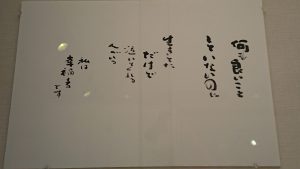 何も良いこと
していないのに
生きてた
だけで
泣いてくれる
人がいる
私は
幸福者です